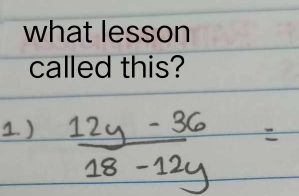 what lesson
called this?
1) 12y - 36 =
18 - 12y